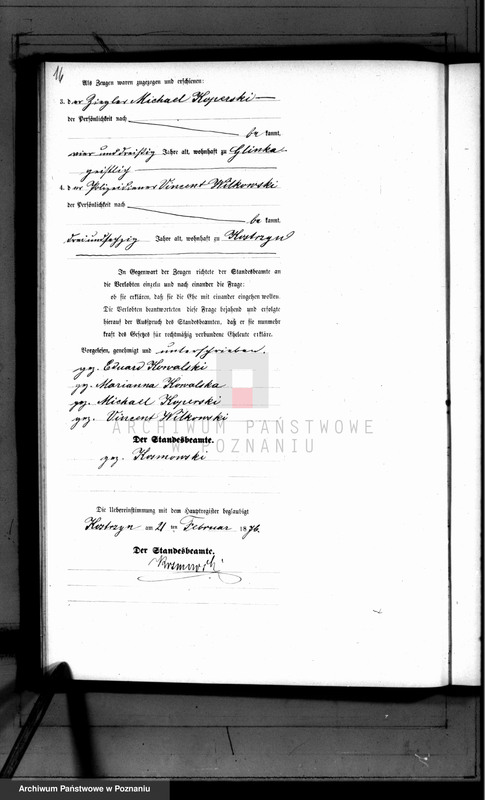 16
Als Zeugen waren zugezogen und erschienen:
3. der Ziegler Michael Koperski
der Persönlichkeit nach
be kannt,
vier und dreißig Jahre alt, wohnhaft zu Glinka
geistlich
4. der Polizeidiener Vincent Witkowski
der Persönlichkeit nach
be kannt,
dreiundsechzig Jahre alt, wohnhaft zu Kostrzyn
In Gegenwart der Zeugen richtete der Standesbeamte an
die Verlobten einzeln und nach einander die Frage:
ob sie erklären, daß sie die Ehe mit einander eingehen wollen.
Die Verlobten beantworteten diese Frage bejahend und erfolgte
hierauf der Ausspruch des Standesbeamten, daß er sie nunmehr
kraft des Gesetzes für rechtmäßig verbundene Eheleute erkläre.
Vorgelesen, genehmigt und unterschrieben.
gez. Eduard Kowalski
gez. Marianna Kowalska
gez. Michall Koperski
gez. Vincent Witkowski
ARCHIWUM PAŃSTWOWE
W POZNANIU
Der Standesbeamte.
gez. Kosmowski
Die Uebereinstimmung mit dem Hauptregister beglaubigt
Kostrzyn am 21 ten Februar 1876.
Der Standesbeamte.
Kosmowski
Archiwum Państwowe w Poznaniu